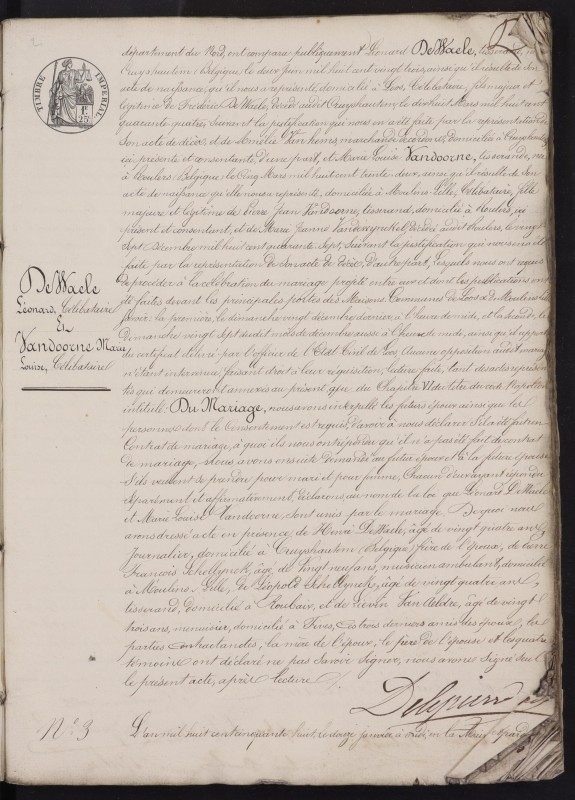 TIMBRE IMPERIAL
département du Nord, ont comparu publiquement Léonard DeWaele, tisserand, né
à Cruyshautem (Belgique) le deux juin mil huit cent vingt trois, ainsi qu'il résulte de son
acte de naissance, qu'il nous a représenté, domicilié à Loos, Célibataire, fils majeur et
légitime de Frédéric DeWaele, décédé audit Cruyshautem, le dix huit Mars mil huit cent
quarante quatre, suivant la justification qui nous en a été faite par la représentation de
Son acte de décès, et de Amélie, marchande, domiciliée à Cruyshautem
ici présente et consentante, d'une part, et Marie Louise Vandoorne, tisserande, née
à Roulers (Belgique) le Cinq Mars mil huit cent trente deux, ainsi qu'il résulte de Son
acte de naissance qu'elle nous a représenté, domiciliée à Moulins-Lille, Célibataire, fille
majeure et légitime de Pierre Jean Vandoorne, tisserand, domicilié à Roulers, ici
présent et consentant, et de Marie Jeanne, décédée audit Roulers, le vingt
Sept Décembre mil huit cent quarante Sept, Suivant la justification qui nous en a été
faite par la représentation de Son acte de décès, d'autre part, lesquels nous ont requis
de procéder à la célébration du mariage projeté entre eux et dont les publications ont
été faites devant les principales portes des Maisons Communes de Loos & de Moulins-Lille
Savoir: la première, le dimanche vingt décembre dernier à l'heure de midi, et la Seconde, le
Dimanche vingt Sept dudit mois de décembre aussi à l'heure de midi, ainsi qu'il appert
du certificat délivré par l'officier de l'Etat Civil de Loos, Aucune opposition audit mariage
n'étant intervenue, faisant droit à leur réquisition, lecture faite, tant des actes représentés
et qui demeureront annexés au présent, que du Chapitre VI du titre du code Napoléon
intitulé: Du Mariage, nous avons interpellé les futurs époux ainsi que les
personnes dont le Consentement est requis, d'avoir à nous déclarer S'il a été fait un
Contrat de mariage, à quoi ils nous ont répondu qu'il n'a pas été fait de contrat
de mariage, & nous avons ensuite demandé au futur époux et à la future épouse
S'ils veulent se prendre pour mari et pour femme, Chacun d'eux ayant répondu
séparément et affirmativement, déclarons, au nom de la loi que Léonard DeWaele
et Marie Louise Vandoorne, sont unis par le mariage. De quoi nous
avons dressé acte en présence de Henri DeWaele, âgé de vingt quatre ans,
Journalier, domicilié à Cruyshautem (Belgique) frère de l'époux, de
François Schellynck, âgé de Vingt neuf ans, musicien ambulant, domicilié
à Moulins-Lille, de Léopold Schellynck, âgé de vingt quatre ans,
tisserand, domicilié à Roubaix, et de Lievin Van, âgé de vingt
trois ans, menuisier, domicilié à Fives, ces trois derniers amis des époux, les
parties contractantes, la mère de l'époux, le père de l'épouse et les quatre
témoins ont déclaré ne pas savoir Signer, nous avons Signé Seul
le présent acte, après lecture
DeWaele
Léonard, Célibataire
Et
Vandoorne Marie
Louise, Célibataire
N° 3
L'an mil huit cent cinquante huit, le douze janvier à